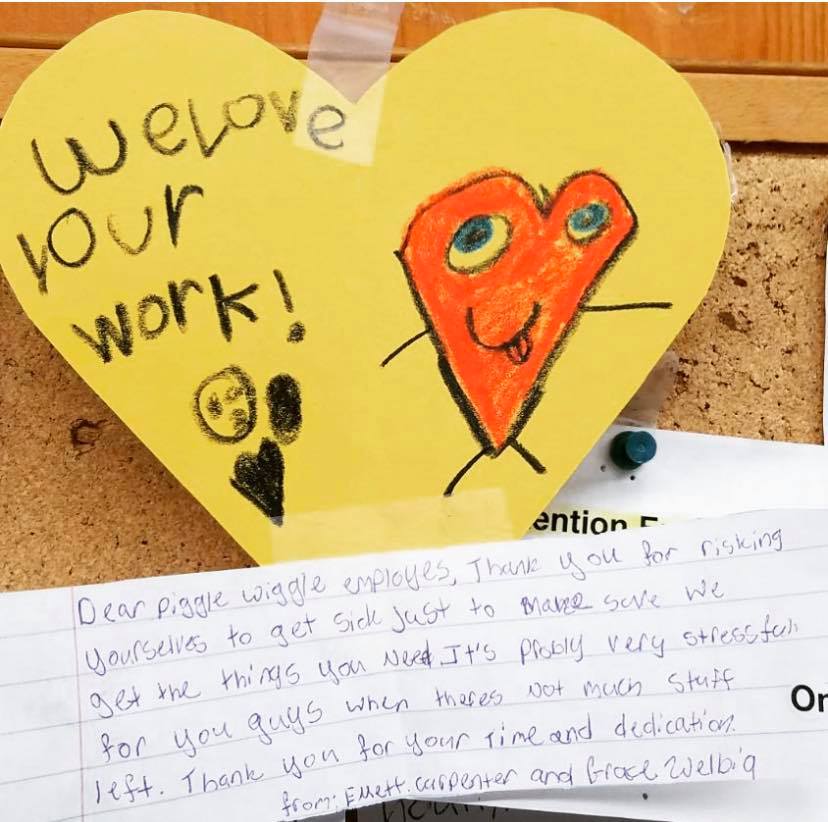 We Love
your
work!
ention E
Dear piggle wiggle employes, Thank you for risking
yourselves to get sick just to make sure we
get the things you Need It's probly very stressful
for you guys when theres Not much stuff
left. Thank you for your Time and dedication.
from: Emett. Carpenter and Grace Welbig
Or